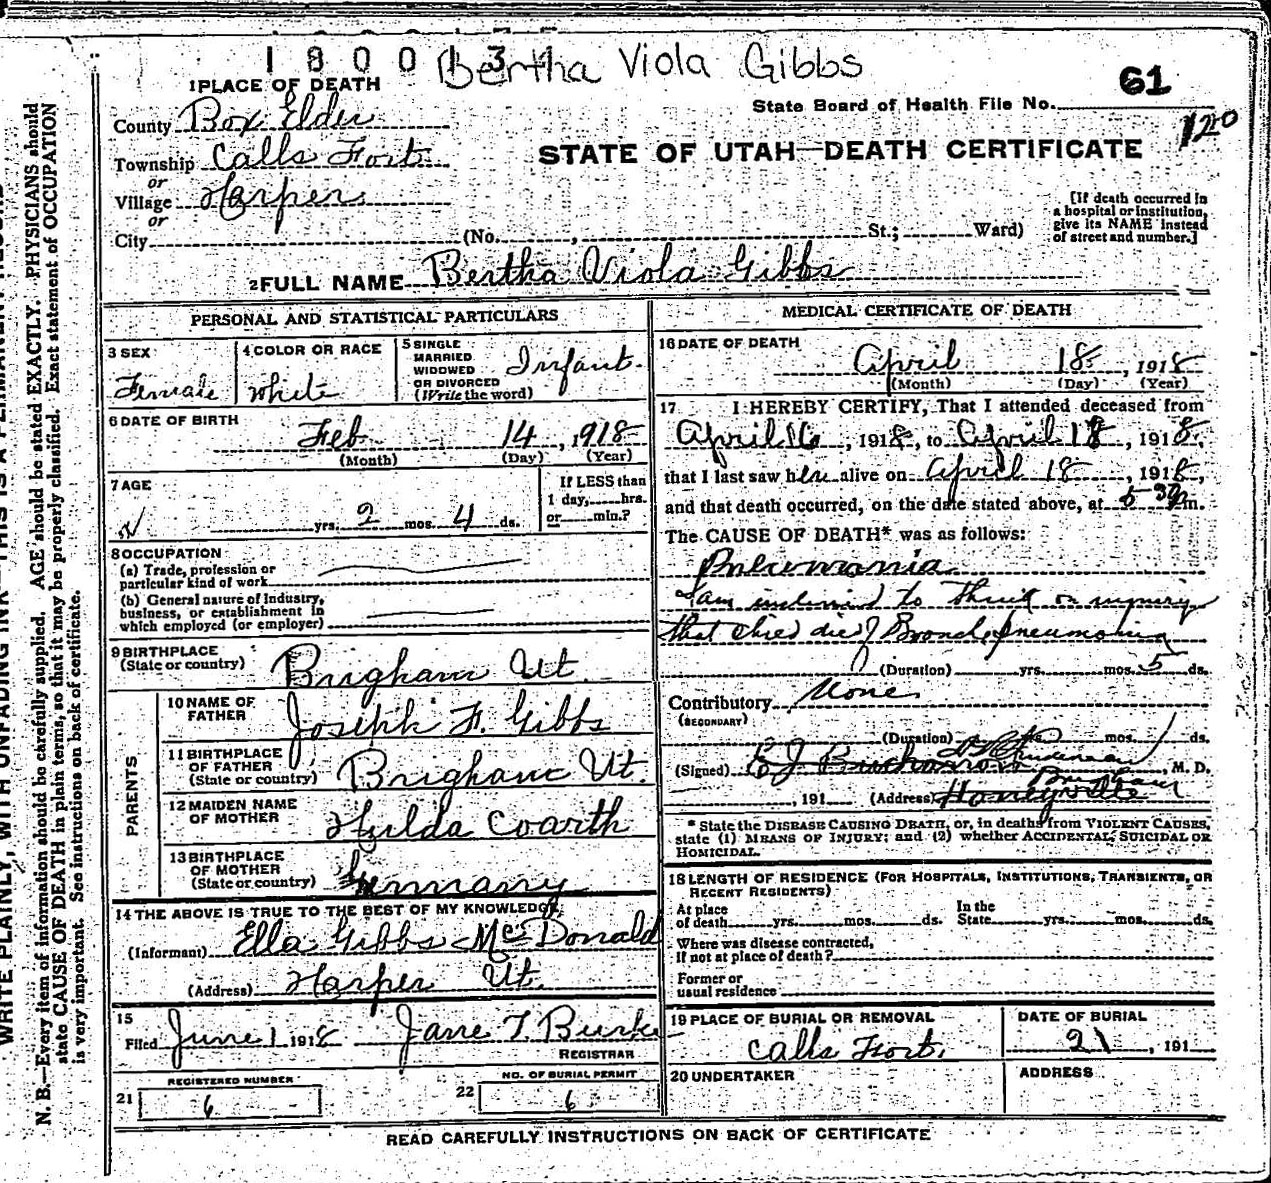 1800131 Bertha Viola Gibbs
1 PLACE OF DEATH
61
State Board of Health File No.
120
County Box Elder
Township Calls Fort
STATE OF UTAH—DEATH CERTIFICATE
or
Village Harper
or
City (No. , St.; Ward)
[If death occurred in a hospital or institution, give its NAME instead of street and number.]
2 FULL NAME Bertha Viola Gibbs
PERSONAL AND STATISTICAL PARTICULARS
3 SEX Female
4 COLOR OR RACE White
5 SINGLE MARRIED WIDOWED OR DIVORCED (Write the word) Infant.
6 DATE OF BIRTH Feb 14, 1918
(Month) (Day) (Year)
7 AGE yrs. 2 mos. 4 ds.
If LESS than 1 day, hrs. or min.?
8 OCCUPATION
(a) Trade, profession or particular kind of work
(b) General nature of Industry, business, or establishment in which employed (or employer)
9 BIRTHPLACE (State or country) Brigham Ut.
PARENTS
10 NAME OF FATHER Joseph F. Gibbs
11 BIRTHPLACE OF FATHER (State or country) Brigham Ut.
12 MAIDEN NAME OF MOTHER Hulda Coarth
13 BIRTHPLACE OF MOTHER (State or country) Germany
14 THE ABOVE IS TRUE TO THE BEST OF MY KNOWLEDGE
(Informant) Ella Gibbs McDonald
(Address) Harper Ut.
15 Filed June 1 1918 Jane T. Burke
REGISTRAR
REGISTERED NUMBER
21 6
NO. OF BURIAL PERMIT
22 6
MEDICAL CERTIFICATE OF DEATH
16 DATE OF DEATH
April 18, 1918
(Month) (Day) (Year)
17 I HEREBY CERTIFY, That I attended deceased from
April 16, 1918, to April 18, 1918,
that I last saw her alive on April 18, 1918,
and that death occurred, on the date stated above, at 5 30 m.
The CAUSE OF DEATH* was as follows:
Pneumonia
I am inclined to think on inquiry
that child died of Broncho pneumonia
(Duration) yrs. mos. 5 ds.
Contributory None
(SECONDARY)
(Duration) mos. ds.
(Signed) , M. D.
, 191 (Address) Honeyville Brigham
* State the DISEASE CAUSING DEATH, or, in deaths from VIOLENT CAUSES,
state (1) MEANS OF INJURY; and (2) whether ACCIDENTAL, SUICIDAL OR
HOMICIDAL.
18 LENGTH OF RESIDENCE (FOR HOSPITALS, INSTITUTIONS, TRANSIENTS, OR
RECENT RESIDENTS)
At place of death yrs. mos. ds. In the State yrs. mos. ds.
Where was disease contracted, If not at place of death?
Former or usual residence
19 PLACE OF BURIAL OR REMOVAL
Calls Fort.
DATE OF BURIAL
21, 191
20 UNDERTAKER
ADDRESS
READ CAREFULLY INSTRUCTIONS ON BACK OF CERTIFICATE
N. B.—Every item of information should be carefully supplied. AGE should be stated EXACTLY. PHYSICIANS should
state CAUSE OF DEATH in plain terms, so that it may be properly classified. Exact statement of OCCUPATION
is very important. See instructions on back of certificate.
WRITE PLAINLY, WITH UNFADING INK—THIS IS A PERMANENT RECORD